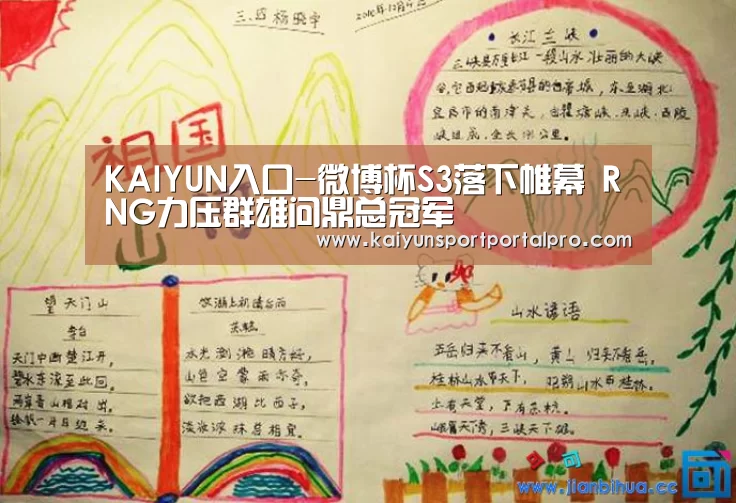 三.5 杨晓宇
2010年12月4日
祖国
山
长江三峡
三峡是万里长江一段山水壮丽的大峡
宜昌市的南津关，由瞿塘峡、巫峡、西陵
KAIYUN入口-微博杯S3落下帷幕 R
NG力压群雄问鼎总冠军
www.kaiyunsportportalpro.com
望天门山
李白
天门中断楚江开，
碧水东流至此回。
两岸青山相对出，
孤帆一片日边来。
饮湖上初晴后雨
苏轼
水光潋滟晴方好，
山色空蒙雨亦奇，
欲把西湖比西子，
淡妆浓抹总相宜。
山水谚语
五岳归来不看山，黄山归来不看岳。
桂林山水甲天下，阳朔山水甲桂林。
上有天堂，下有苏杭。
峨眉天下秀，三峡天下雄。
www.jianbihua.cc